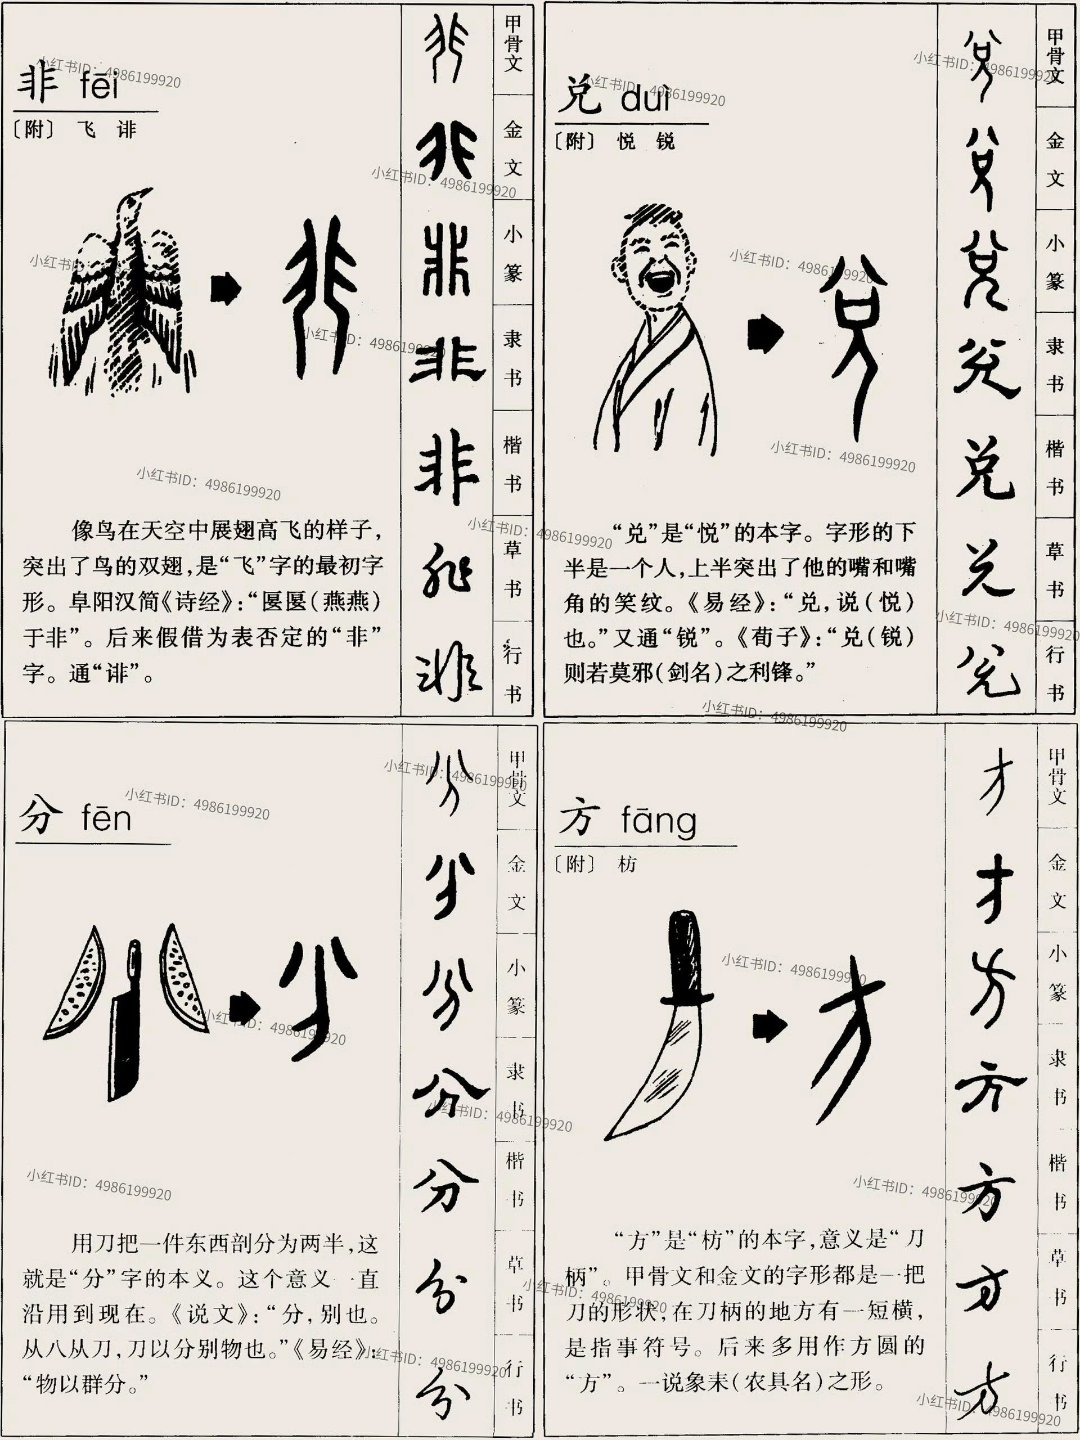 非 fēi
〔附〕 飞 诽
像鸟在天空中展翅高飞的样子,
突出了鸟的双翅,是“飞”字的最初字
形。阜阳汉简《诗经》:“匽匽(燕燕)
于非”。后来假借为表否定的“非”
字。通“诽”。
甲骨文
金文
小篆
隶书
楷书
草书
行书
兑 duì
〔附〕 悦 锐
“兑”是“悦”的本字。字形的下
半是一个人,上半突出了他的嘴和嘴
角的笑纹。《易经》:“兑,说(悦)
也。”又通“锐”。《荀子》:“兑(锐)
则若莫邪(剑名)之利锋。”
甲骨文
金文
小篆
隶书
楷书
草书
行书
分 fēn
用刀把一件东西剖分为两半,这
就是“分”字的本义。这个意义一直
沿用到现在。《说文》:“分,别也。
从八从刀,刀以分别物也。”《易经》:
“物以群分。”
甲骨文
金文
小篆
隶书
楷书
草书
行书
方 fāng
〔附〕 枋
“方”是“枋”的本字,意义是“刀
柄”。甲骨文和金文的字形都是一把
刀的形状,在刀柄的地方有一短横,
是指事符号。后来多用作方圆的
“方”。一说象耒(农具名)之形。
甲骨文
金文
小篆
隶书
楷书
草书
行书
小红书ID: 4986199920